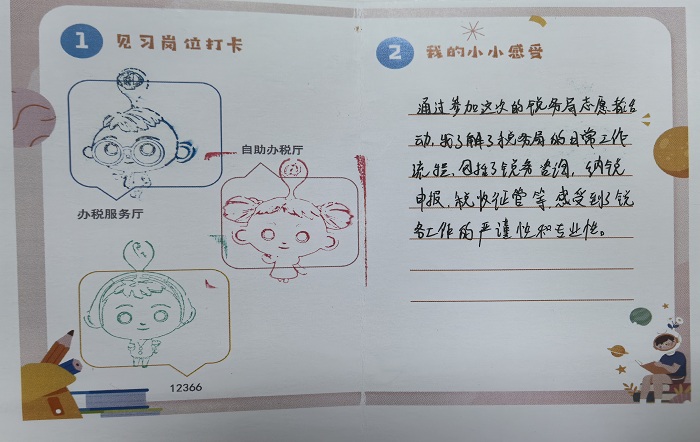 1 见习岗位打卡
自助办税厅
办税服务厅
12366
2 我的小小感受
通过参加这次的税务局志愿活
动,我了解了税务局的日常工作
流程,包括了税务咨询,纳税
申报,税收征管等,感受到了税
务工作的严谨性和专业性。